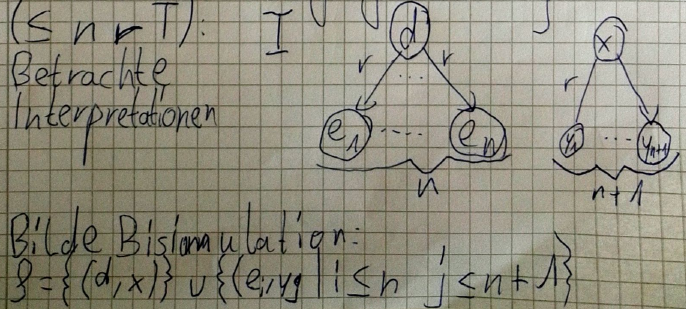 (≤ n r T): I
d x
r ... r r
Betrachte
Interpretationen
e1 ---- en y1 ... yn+1
n n+1
Bilde Bisiomulation:
ρ = {(d,x)} ∪ {(ei,yj | i ≤ n j ≤ n+1}